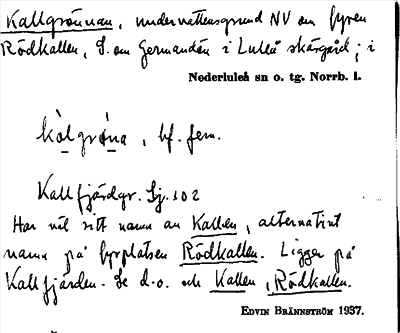 Kallgrönnan, undervattensgrund NV om fyren
Rödkallen, S. om Germandön i Luleå skärgård; i
Nederluleå sn o. tg. Norrb. l.
kàlgrǫ́na, bf. fem.
Kallfjärdgr. Sj. 102
Har väl sitt namn av Kallen, alternativt
namn på fyrplatsen Rödkallen. Ligger på
Kallfjärden. Se d.o. och Kallen, Rödkallen.
EDVIN BRÄNNSTRÖM 1937.